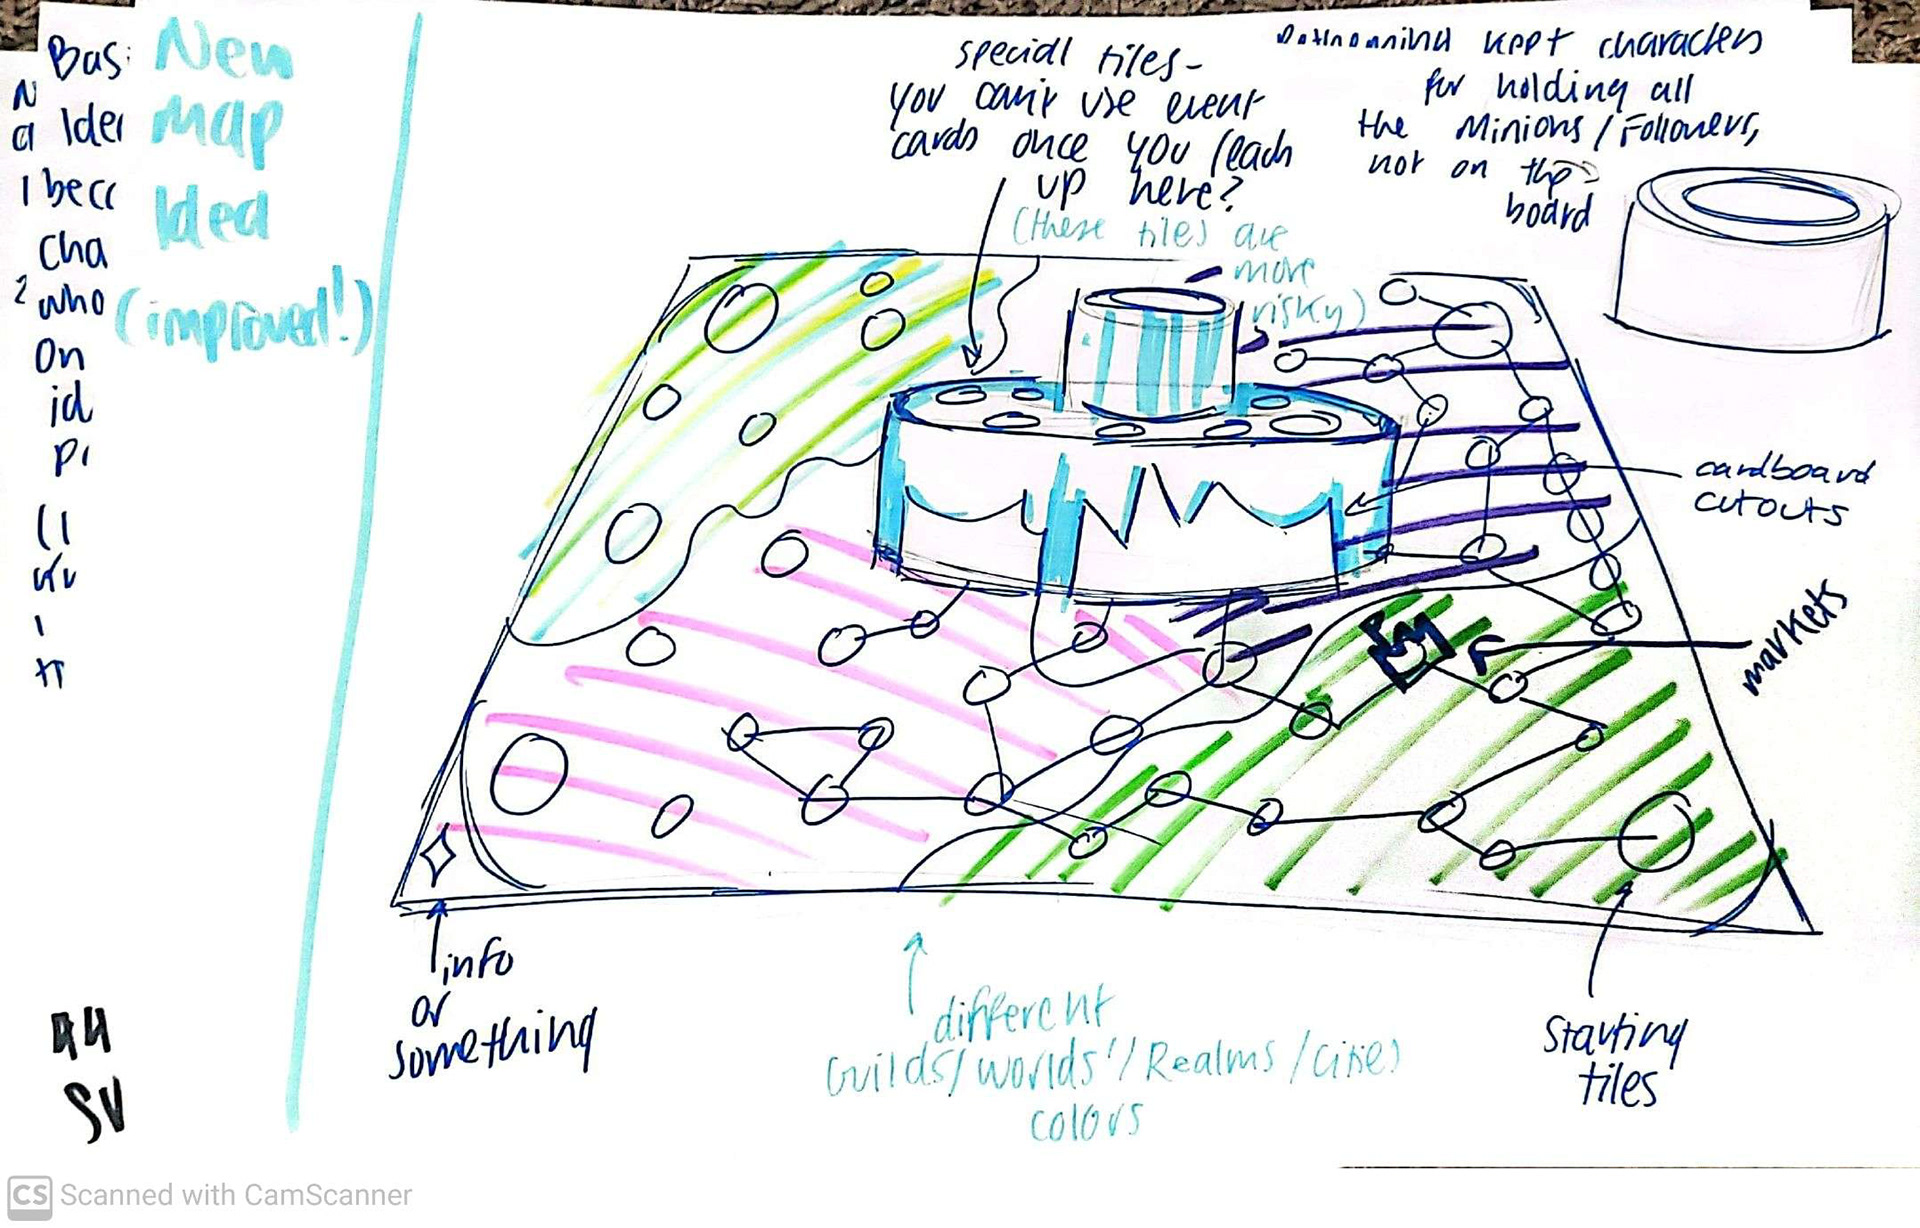 New
Map
Idea
(improved!)
Bas
N
a Ide
1 beca
Cha
2 who
On
id
special tiles-
you can't use event
cards once you reach
up here?
(these tiles are
more
risky)
kept characters
for holding all
the Minions/Followers,
not on the
board
cardboard
cutouts
markets
info
or
something
different
Guilds/Worlds/Realms/Cities
colors
Starting
tiles
CS Scanned with CamScanner